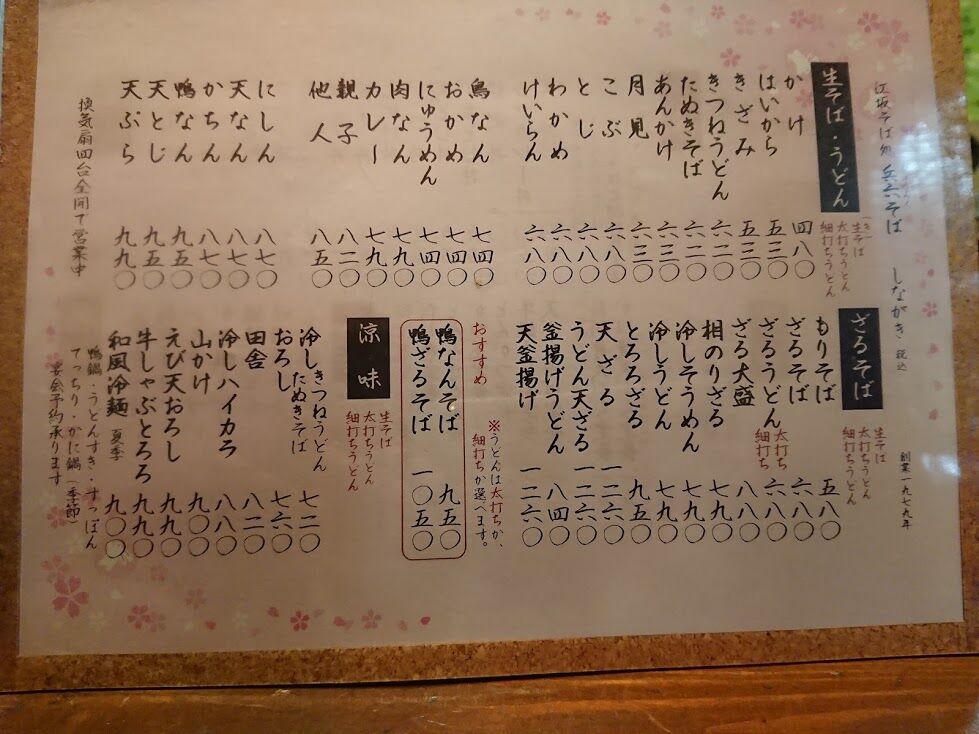 江坂そば処 兵六そば しながき 税込
創業一九七九年
生そば・うどん
(き)
生そば
太打ちうどん
細打ちうどん
かけ 四八〇
はいから 五三〇
きざみ 五三〇
きつねうどん 六二〇
たぬきそば 六二〇
あんかけ 六三〇
月見 六三〇
こぶ 六八〇
とじ 六八〇
わかめ 六八〇
けいらん 六八〇
鳥なん 七四〇
おかめ 七四〇
にゅうめん 七四〇
肉なん 七九〇
カレー 七九〇
親子 八二〇
他人 八五〇
にしん 八七〇
天なん 八七〇
かちん 八七〇
鴨なん 九五〇
天とじ 九五〇
天ぷら 九九〇
換気扇四台全開で営業中
ざるそば
生そば
太打ちうどん
細打ちうどん
もりそば 五八〇
ざるそば 六八〇
ざるうどん 太打ち 細打ち 六八〇
ざる大盛 八八〇
相のりざる 七九〇
冷しそうめん 七九〇
冷しうどん 七九〇
とろろざる 九五〇
天ざる 一二六〇
うどん天ざる 一二六〇
釜揚げうどん 八四〇
天釜揚げ 一二六〇
※うどんは太打ちか、
細打ちか選べます。
おすすめ
鴨なんそば 九五〇
鴨ざるそば 一〇五〇
涼味
生そば
太打ちうどん
細打ちうどん
冷しきつねうどん
たぬきそば 七二〇
おろし 七六〇
田舎 八二〇
冷しハイカラ 八八〇
山かけ 九〇〇
えび天おろし 九九〇
牛しゃぶとろろ 九九〇
和風冷麺 夏季 九〇〇
鴨鍋・うどんすき・すっぽん
てっちり・かに鍋(季節)
宴会予約承ります